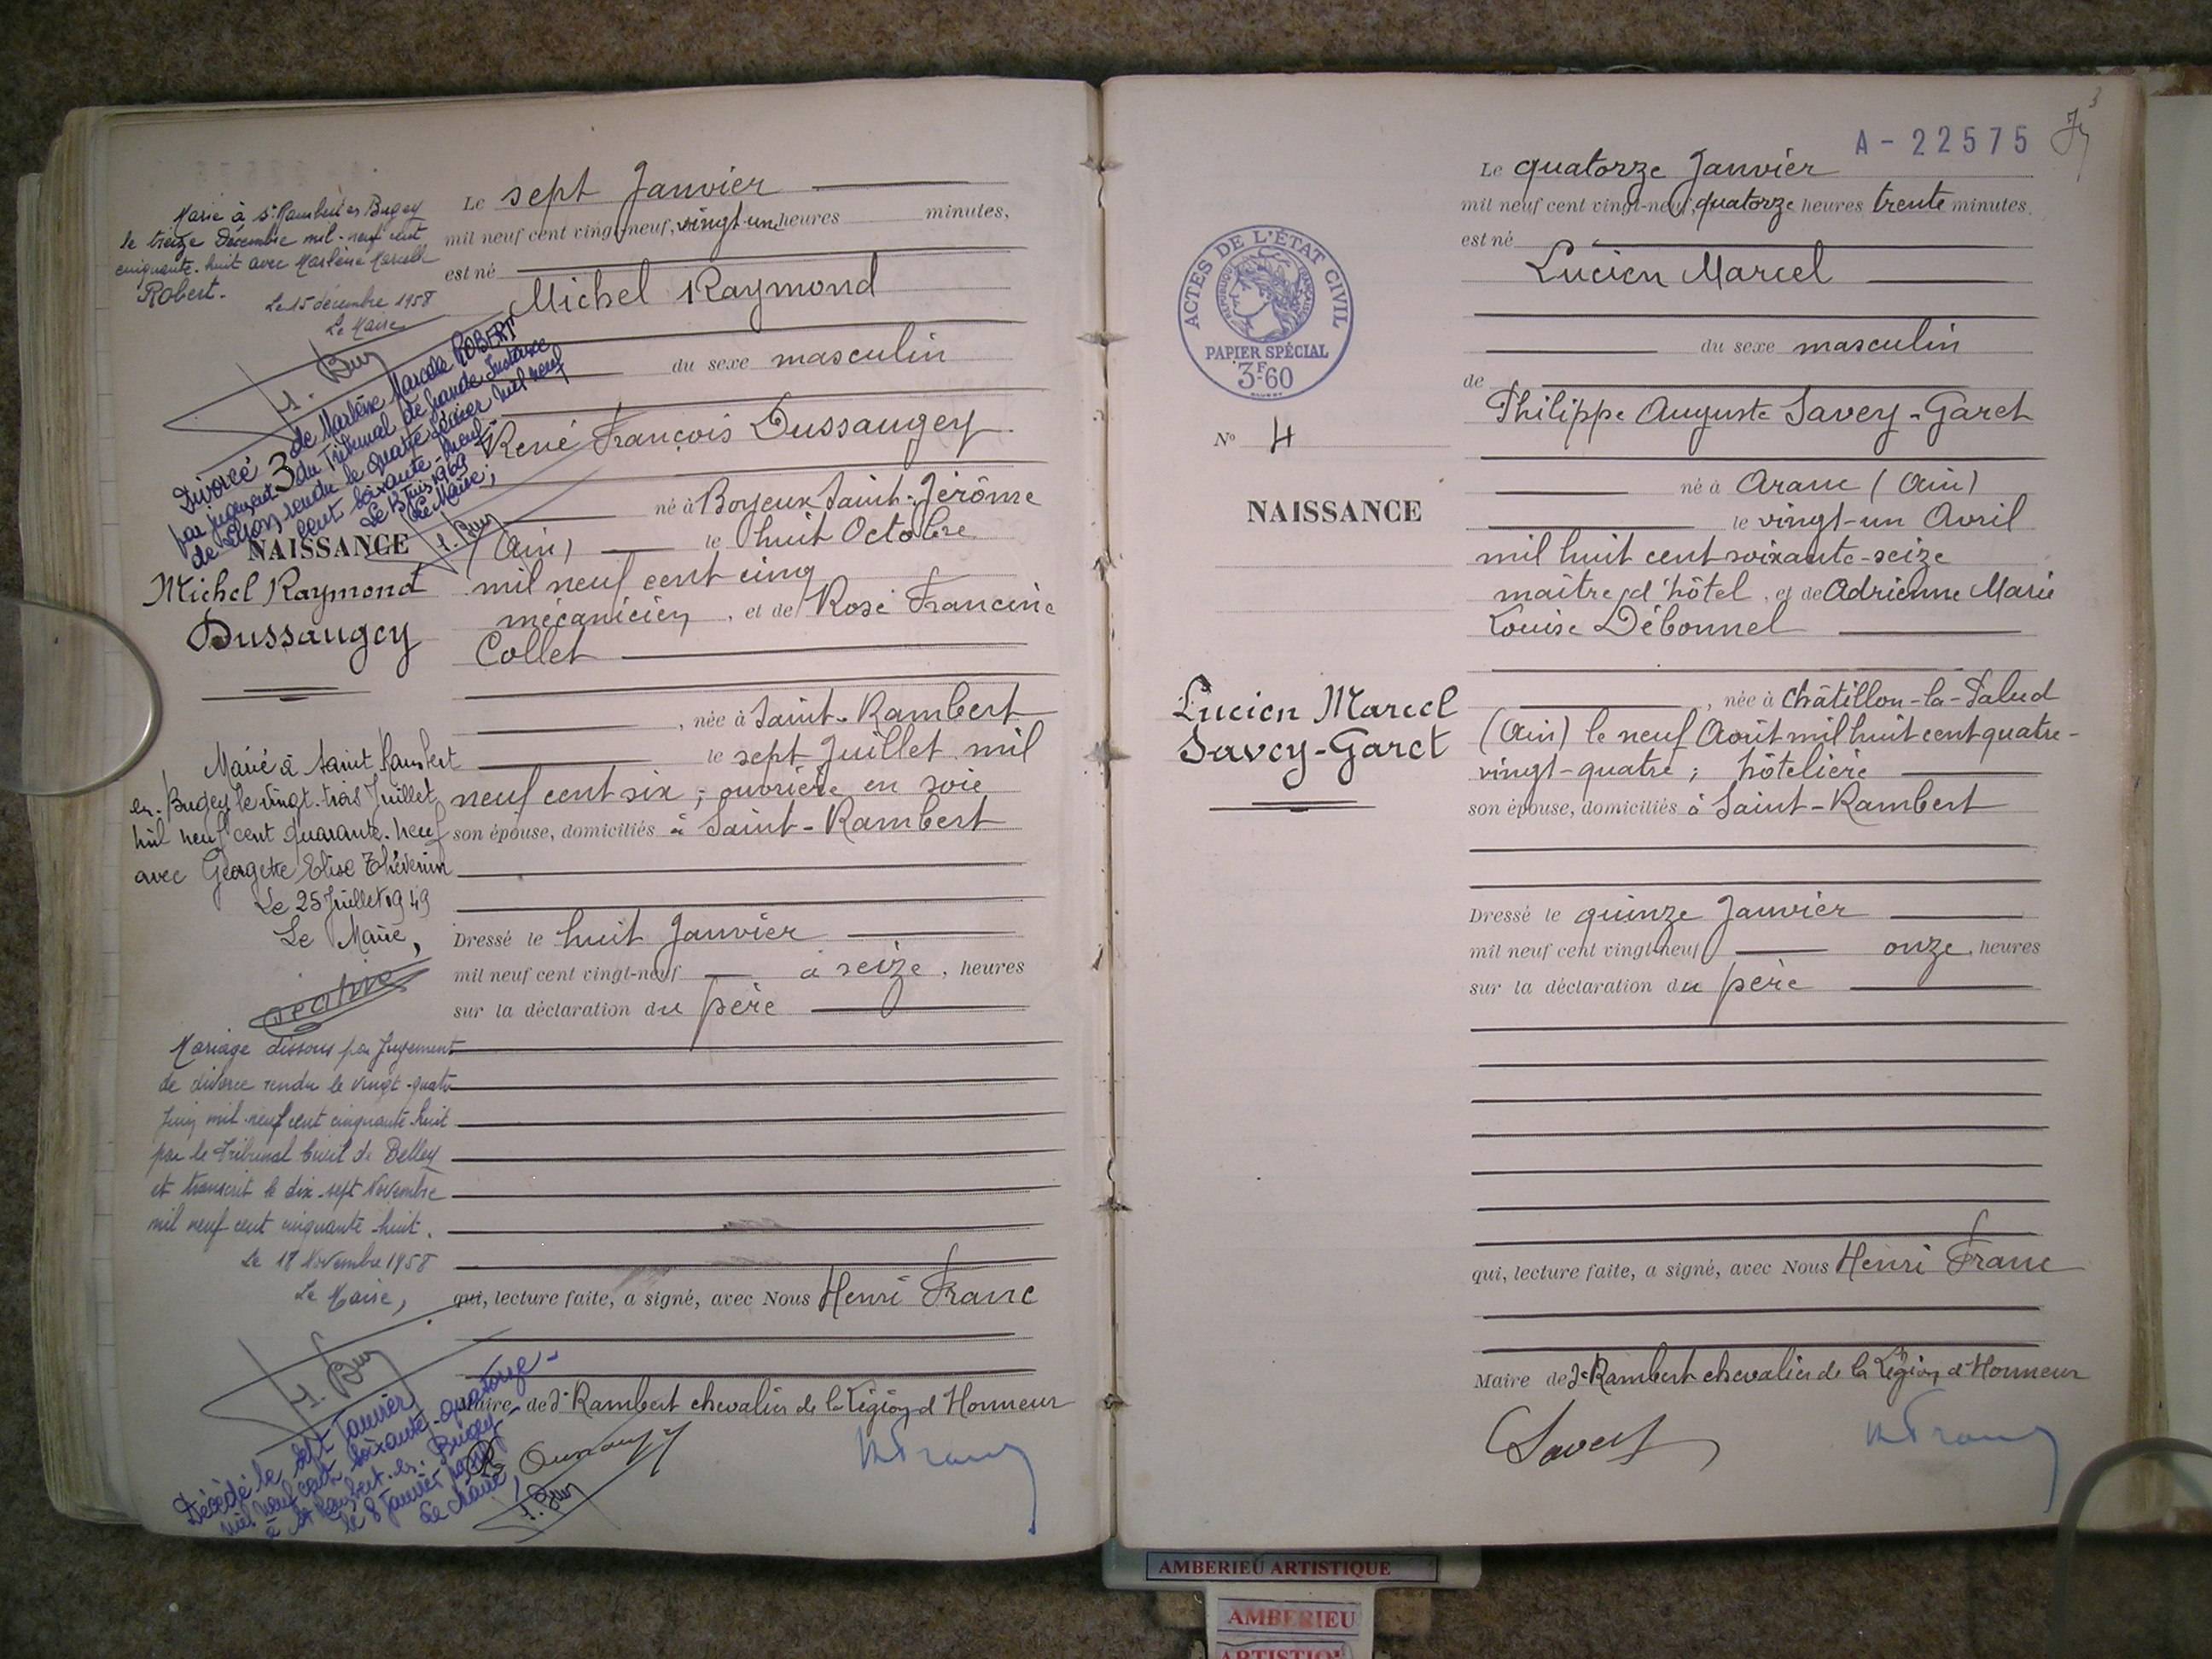 Marié à St Rambert en Bugey
le treize Décembre mil-neuf cent
cinquante-huit avec Marlène Marcelle
Robert.
Le 15 décembre 1958
Le Maire
Divorcé de Marlène Marcelle ROBERT
par jugement du Tribunal de Grande Instance
de Lyon rendu le quatre Février mil neuf
cent soixante-neuf.
Le 13 Juin 1969
Le Maire,
3
NAISSANCE
Michel Raymond
Dussaugey
Marié à Saint Rambert
en-Bugey le vingt-trois Juillet
mil neuf cent quarante-neuf
avec Georgette Elise Thévenin
Le 25 Juillet 1949
Le Maire,
Mariage dissous par Jugement
de divorce rendu le vingt-quatre
Juin mil-neuf cent cinquante-huit
par le Tribunal Civil de Belley
et transcrit le dix-sept Novembre
mil neuf cent cinquante-huit.
Le 18 Novembre 1958
Le Maire,
Décédé le sept Janvier
mil neuf cent soixante-quatorze
à St Rambert-en-Bugey
le 8 Janvier
Le Maire,
Le sept Janvier
mil neuf cent vingt-neuf, vingt-un heures minutes,
est né
Michel Raymond
du sexe masculin
René François Dussaugey
né à Boyeux Saint-Jérôme
(Ain) le huit Octobre
mil neuf cent cinq
mécanicien, et de Rose Francine
Collet
, née à Saint-Rambert
le sept Juillet mil
neuf cent six ; ouvrière en soie
son épouse, domiciliés à Saint-Rambert
Dressé le huit Janvier
mil neuf cent vingt-neuf à seize, heures
sur la déclaration du père
qui, lecture faite, a signé, avec Nous Henri Franc
Maire de St Rambert chevalier de la Légion d'Honneur
A - 22575
3
ACTES DE L'ÉTAT CIVIL
RÉPUBLIQUE FRANÇAISE
PAPIER SPÉCIAL
3F60
No 4
NAISSANCE
Lucien Marcel
Savey-Garet
Le quatorze Janvier
mil neuf cent vingt-neuf, quatorze heures trente minutes.
est né
Lucien Marcel
du sexe masculin
de
Philippe Auguste Savey-Garet
né à Aranc (Ain)
le vingt-un Avril
mil huit cent soixante-seize
maître d'hôtel, et de Adrienne Marie
Louise Débonnel
, née à Châtillon-la-Palud
(Ain) le neuf Août mil huit cent quatre-
vingt-quatre ; hôtelière
son épouse, domiciliés à Saint-Rambert
Dressé le quinze Janvier
mil neuf cent vingt-neuf onze heures
sur la déclaration du père
qui, lecture faite, a signé, avec Nous Henri Franc
Maire de St Rambert chevalier de la Légion d'Honneur
Savey
AMBERIEU ARTISTIQUE
AMBERIEU
ARTISTIQUE